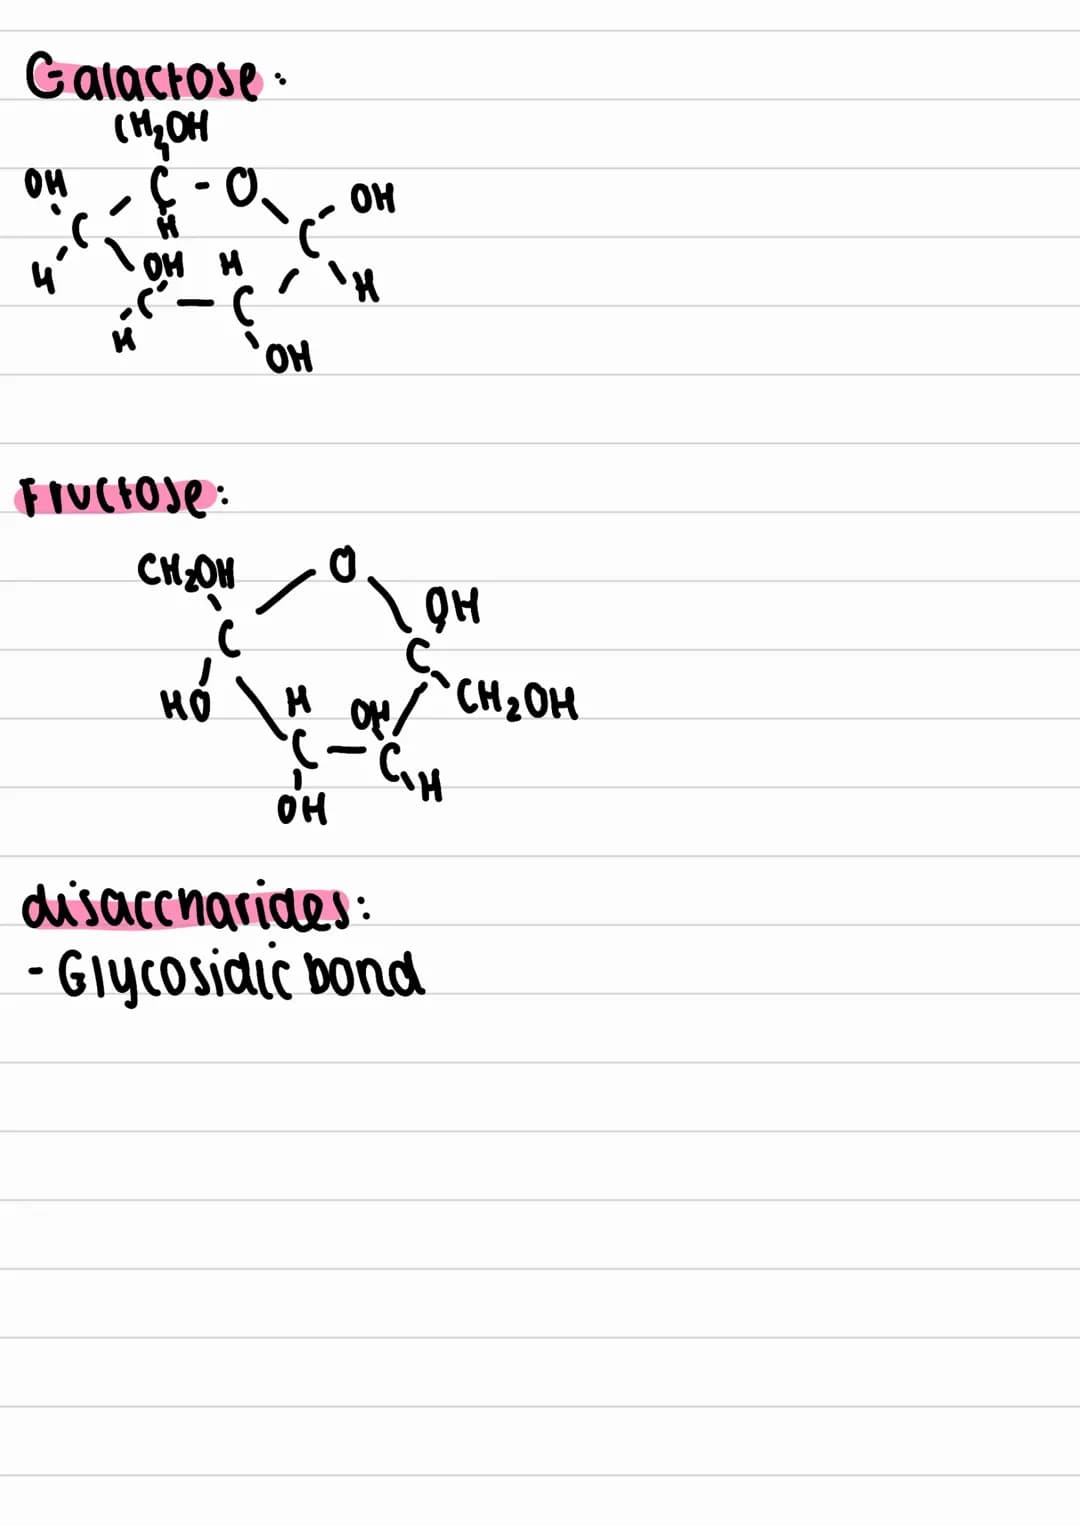 Galactose:
CH₂OH
OH C - O OH
C H C
H OH H H
C - C
H OH
Fructose:
CH₂OH O
OH
C C
HO H OH CH₂OH
C - C H
OH
disaccharides:
- Glycosidic bond